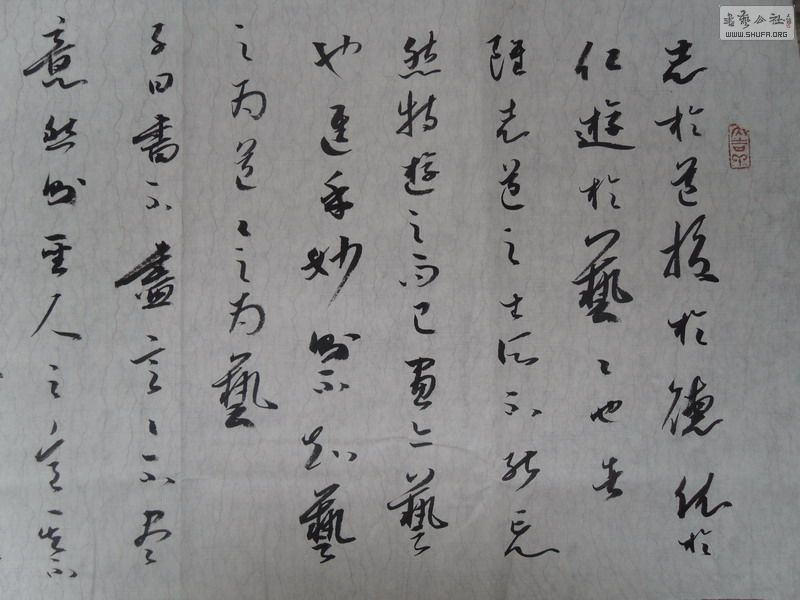 志於道據於德依於
仁遊於藝々也者
雖志道之士所不能忘
然特遊之而已畫亦藝
也進乎妙則不知藝
之為道々之為藝
子曰書不盡言々不盡
意然則聖人之意其不
書藝公社
WWW.SHUFA.ORG